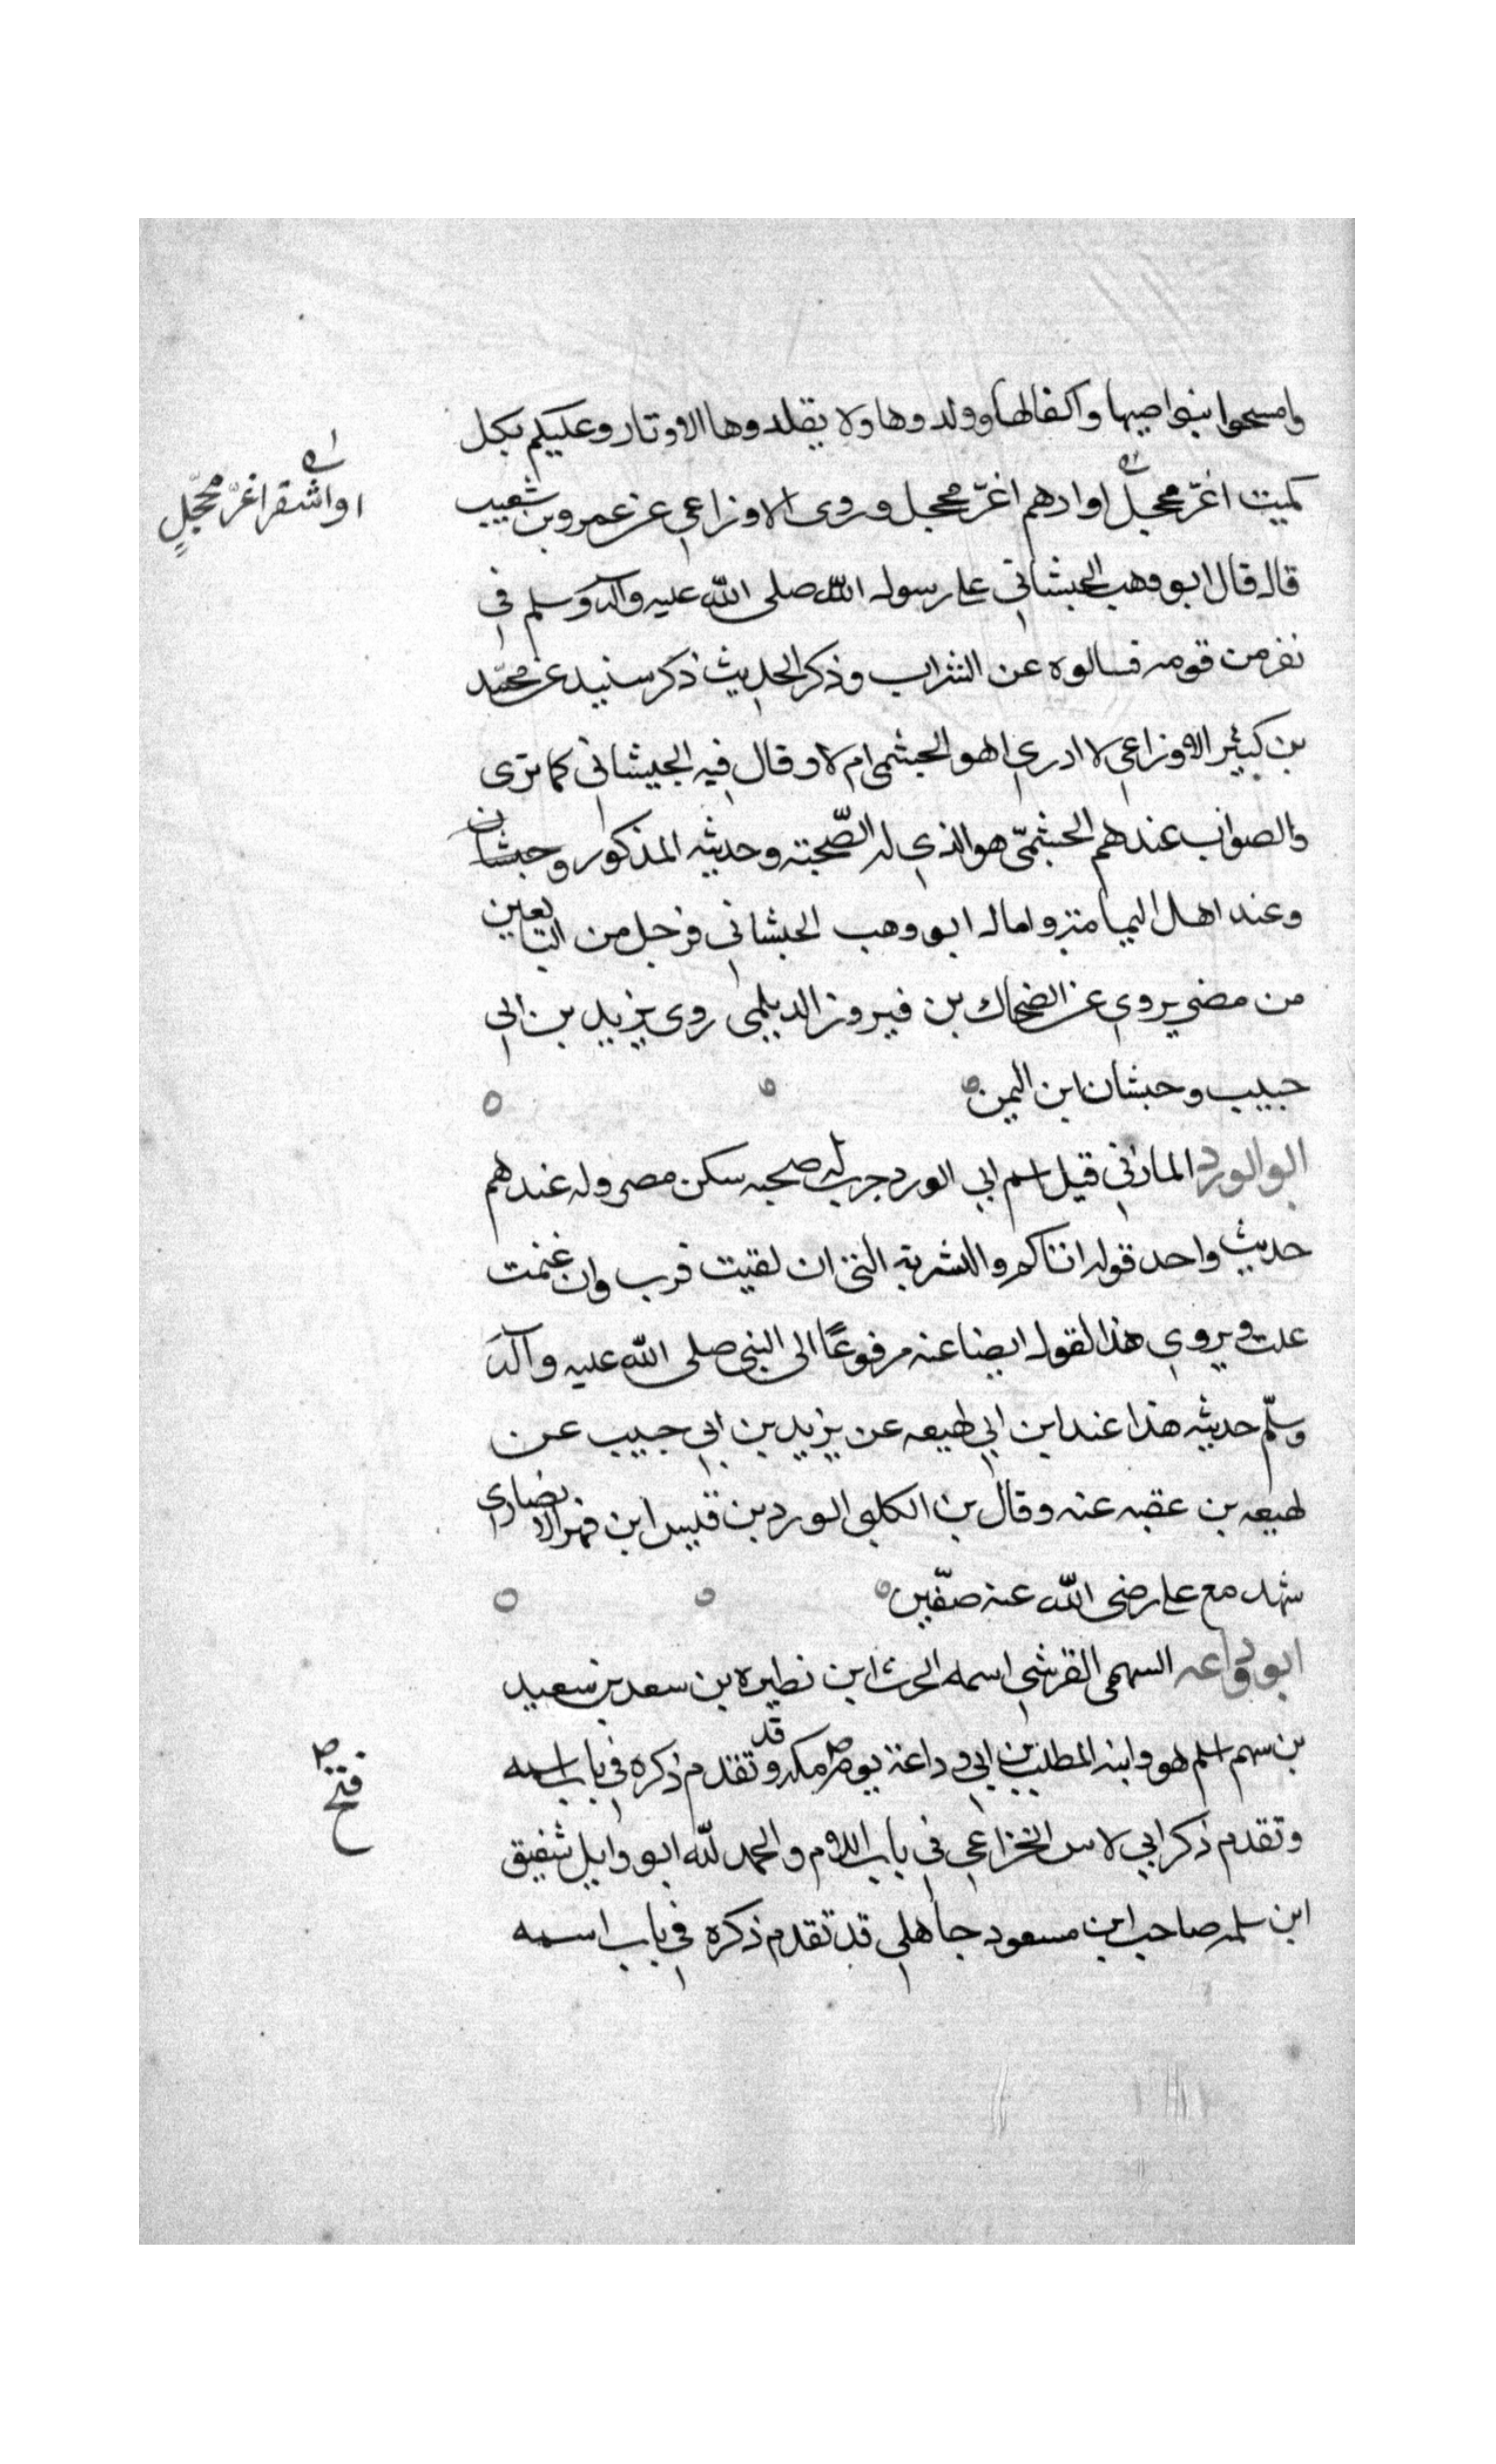 وامسحوا بنواصيها واكفالها وولدوها ولا يقلدوها الاوتار وعليكم بكل
كميت اغرّ محجل اوادهم اغرّ محجل وروى الاوزاعي عن عمرو بن شعيب
او اشقر اغرّ محجّلٍ
قال قال ابو وهب الجبشاني على رسول الله صلى الله عليه وآله وسلم في
نفر من قومه فسالوه عن الشراب وذكر الحديث ذكر سنيد عن محمّد
بن كيثير الاوزاعي لا ادري اهو الجشمي ام لا وقال فيه الجيشاني كما ترى
والصواب عندهم الجشميّ هو الذي له الصّحبته وحديثه المذكور وجبشان
وعند اهل اليمامته واما له ابو وهب الجبشاني فرجل من التابعين
من مضى يروي عن الضحاك بن فيروز الديلمي روى يزيد بن ابي
حبيب وحبشان ابن اليمن
ابو الورد المازني قيل اسم ابي الورد جرب له صحبه سكن مصر وله عندهم
حديث واحد قوله اناكم والشريه التي ان لقيت فرب وان غنمت
علت ويروي هذا لقول ايضا عنه مرفوعًا الى النبي صلى الله عليه وآله
وسلّم حديثه هذا عند ابن ابي لهيعه عن يزيد بن ابي حبيب عن
لهيعه بن عقبه عنه وقال بن الكلبي الورد بن قيس ابن فهر الانصاري
شهد مع علي رضى الله عنه صفّين
ابو وداعه السهمي القرشي اسمه الحرث ابن نطيره بن سعد بن سعيد
بن سهم اسلم هو وابنه المطلب بن ابي وداعة يوم مكه وقد تقدم ذكره في باب اسمه
فتح
وتقدم ذكر ابي لاس الخزاعي في باب اللام والحمد لله ابو وايل شفيق
ابن سلمه صاحب ابن مسعود جاهلي قد تقدم ذكره في باب اسمه